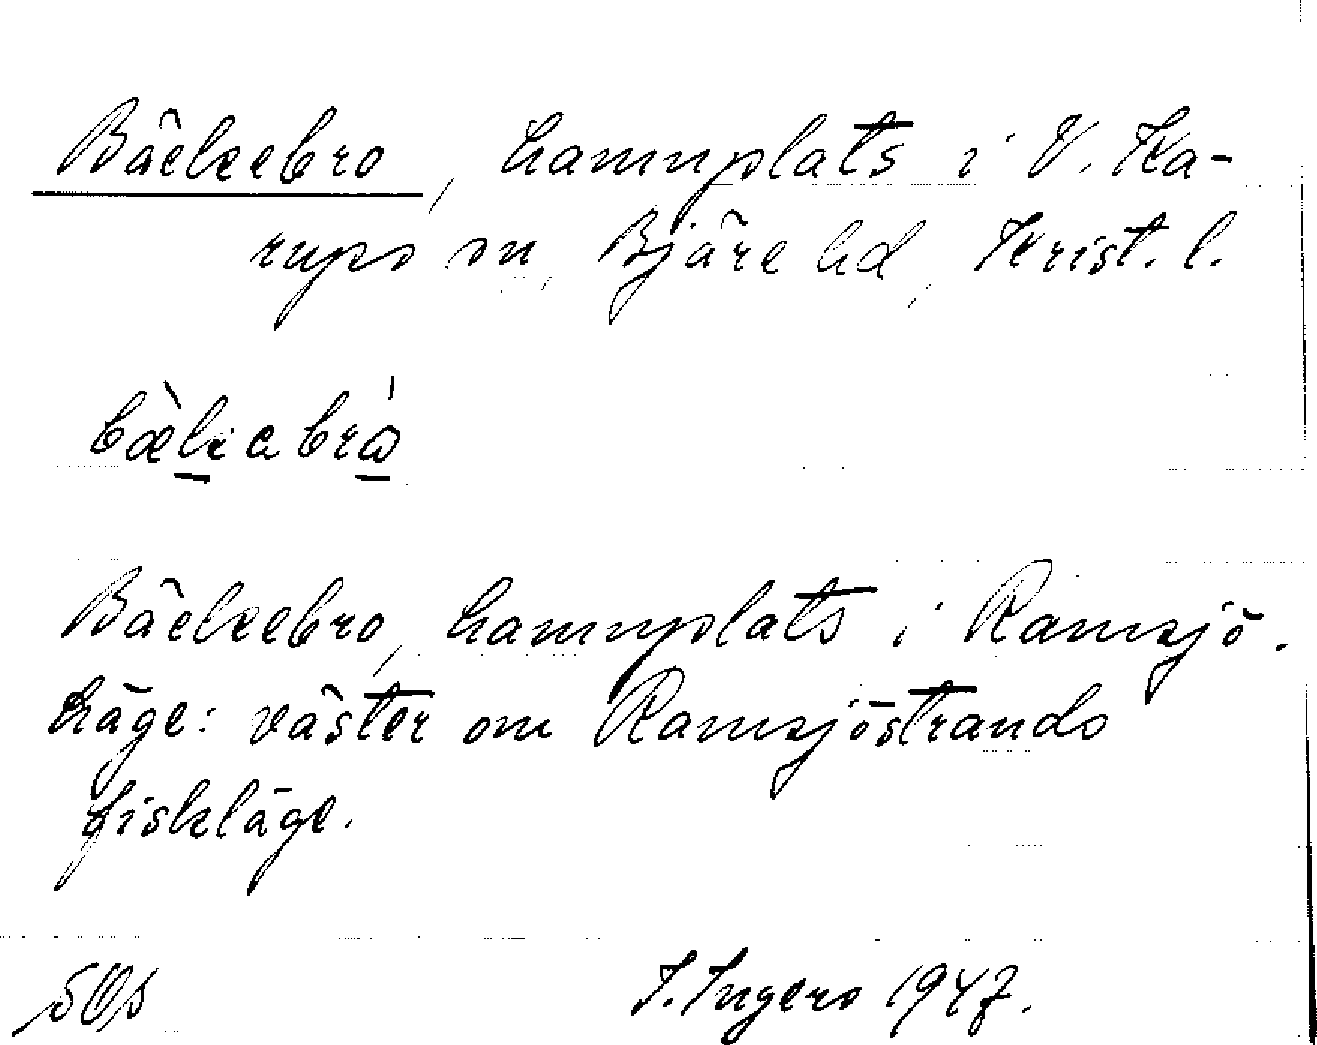 Bäckebro, hamnplats i V. Ka-
rups sn, Bjäre hd, Krist. l.
bæ̀kabrá
Bäckebro, hamnplats i Ramsjö.
Läge: väster om Ramsjöstrands
fiskläge.
I. Ingers 1947.